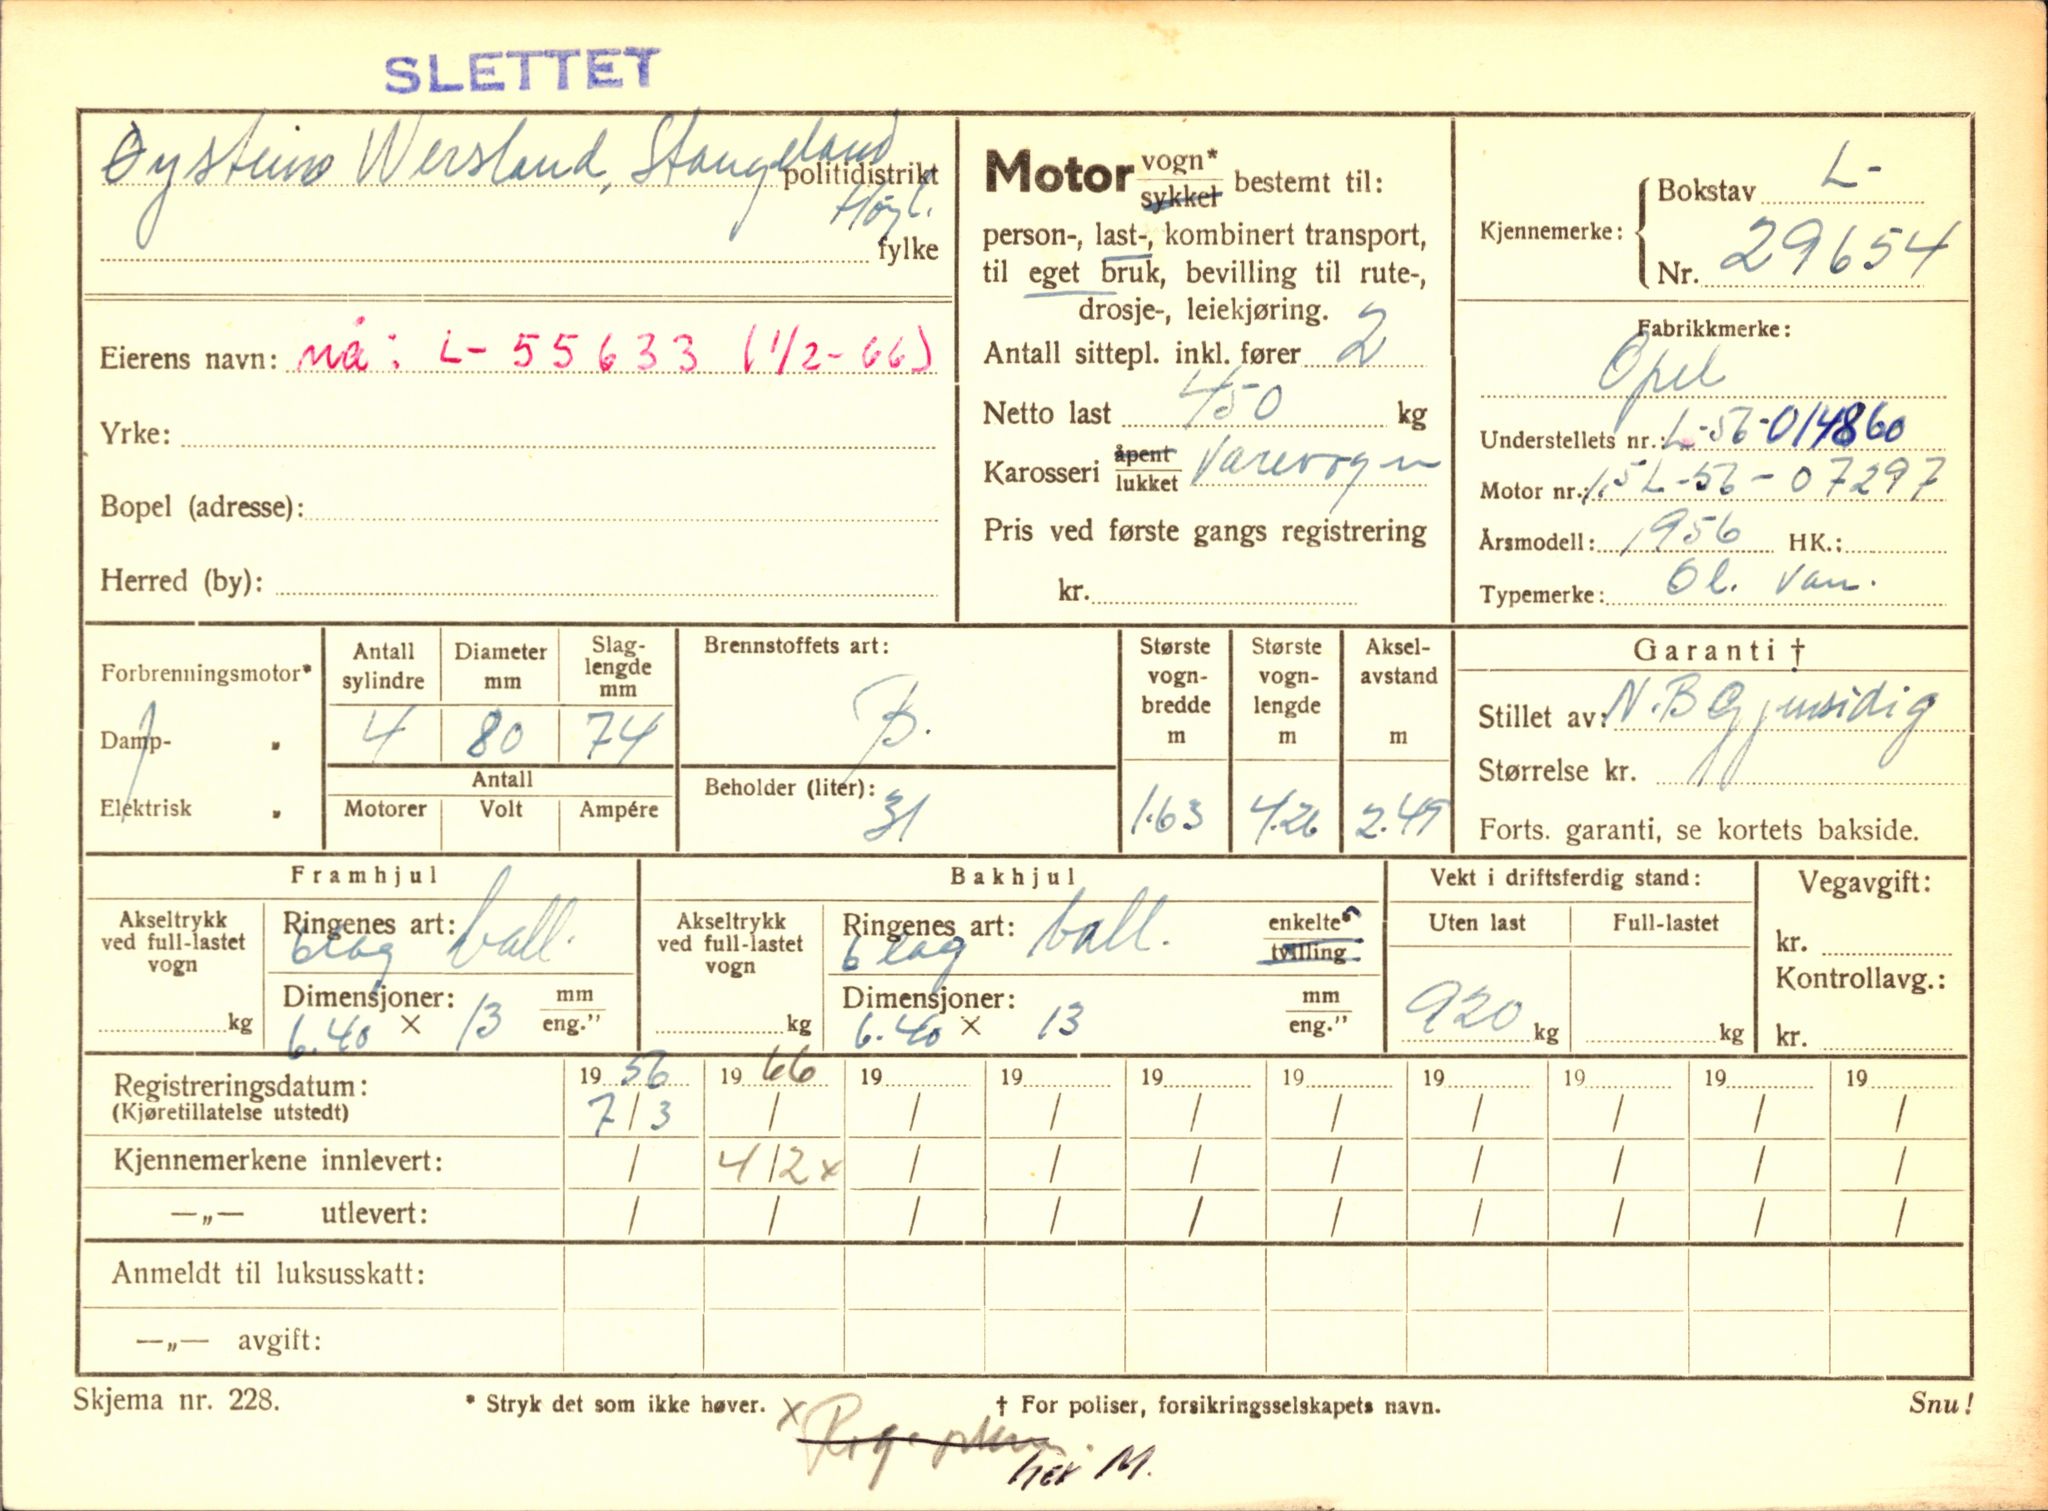 SLETTET
Øystein Wersland, Stangeland
politidistrikt
Høyl.
fylke
Eierens navn: nå: L-55633 (1/2-66)
Yrke:
Bopel (adresse):
Herred (by):
Motor vogn* sykkel bestemt til:
person-, last-, kombinert transport,
til eget bruk, bevilling til rute-,
drosje-, leiekjøring.
Antall sittepl. inkl. fører 2
Netto last 450 kg
Karosseri åpent lukket Varevogn
Pris ved første gangs registrering
kr.
Kjennemerke: Bokstav L-
Nr. 29654
Fabrikkmerke:
Opel
Understellets nr.: L-56-014860
Motor nr.: 1,5L-56-07297
Årsmodell: 1956 HK.:
Typemerke: Ol. Van.
Forbrenningsmotor*
Damp- „
Elektrisk „
Antall sylindre
Diameter mm
Slag-lengde mm
4 80 74
Antall
Motorer Volt Ampére
Brennstoffets art:
B.
Beholder (liter):
31
Største vogn-bredde m
1.63
Største vogn-lengde m
4.26
Aksel-avstand m
2.49
Garanti †
Stillet av: N.B Gjensidig
Størrelse kr.
Forts. garanti, se kortets bakside.
Framhjul
Akseltrykk ved full-lastet vogn
kg
Ringenes art:
6 lag ball.
Dimensjoner: mm
6.40 × 13 eng."
Bakhjul
Akseltrykk ved full-lastet vogn
kg
Ringenes art: enkelte
6 lag ball. tvilling
Dimensjoner: mm
6.40 × 13 eng."
Vekt i driftsferdig stand:
Uten last Full-lastet
920 kg kg
Vegavgift:
kr.
Kontrollavg.:
kr.
Registreringsdatum: 19 56 19 66 19 19 19 19 19 19 19 19
(Kjøretillatelse utstedt) 7/3 / / / / / / / / /
Kjennemerkene innlevert: / 4/2 x / / / / / / / /
—„— utlevert: / / / / / / / / / /
Anmeldt til luksusskatt:
—„— avgift:
Skjema nr. 228. * Stryk det som ikke høver. † For poliser, forsikringsselskapets navn. Snu!
x
her M.